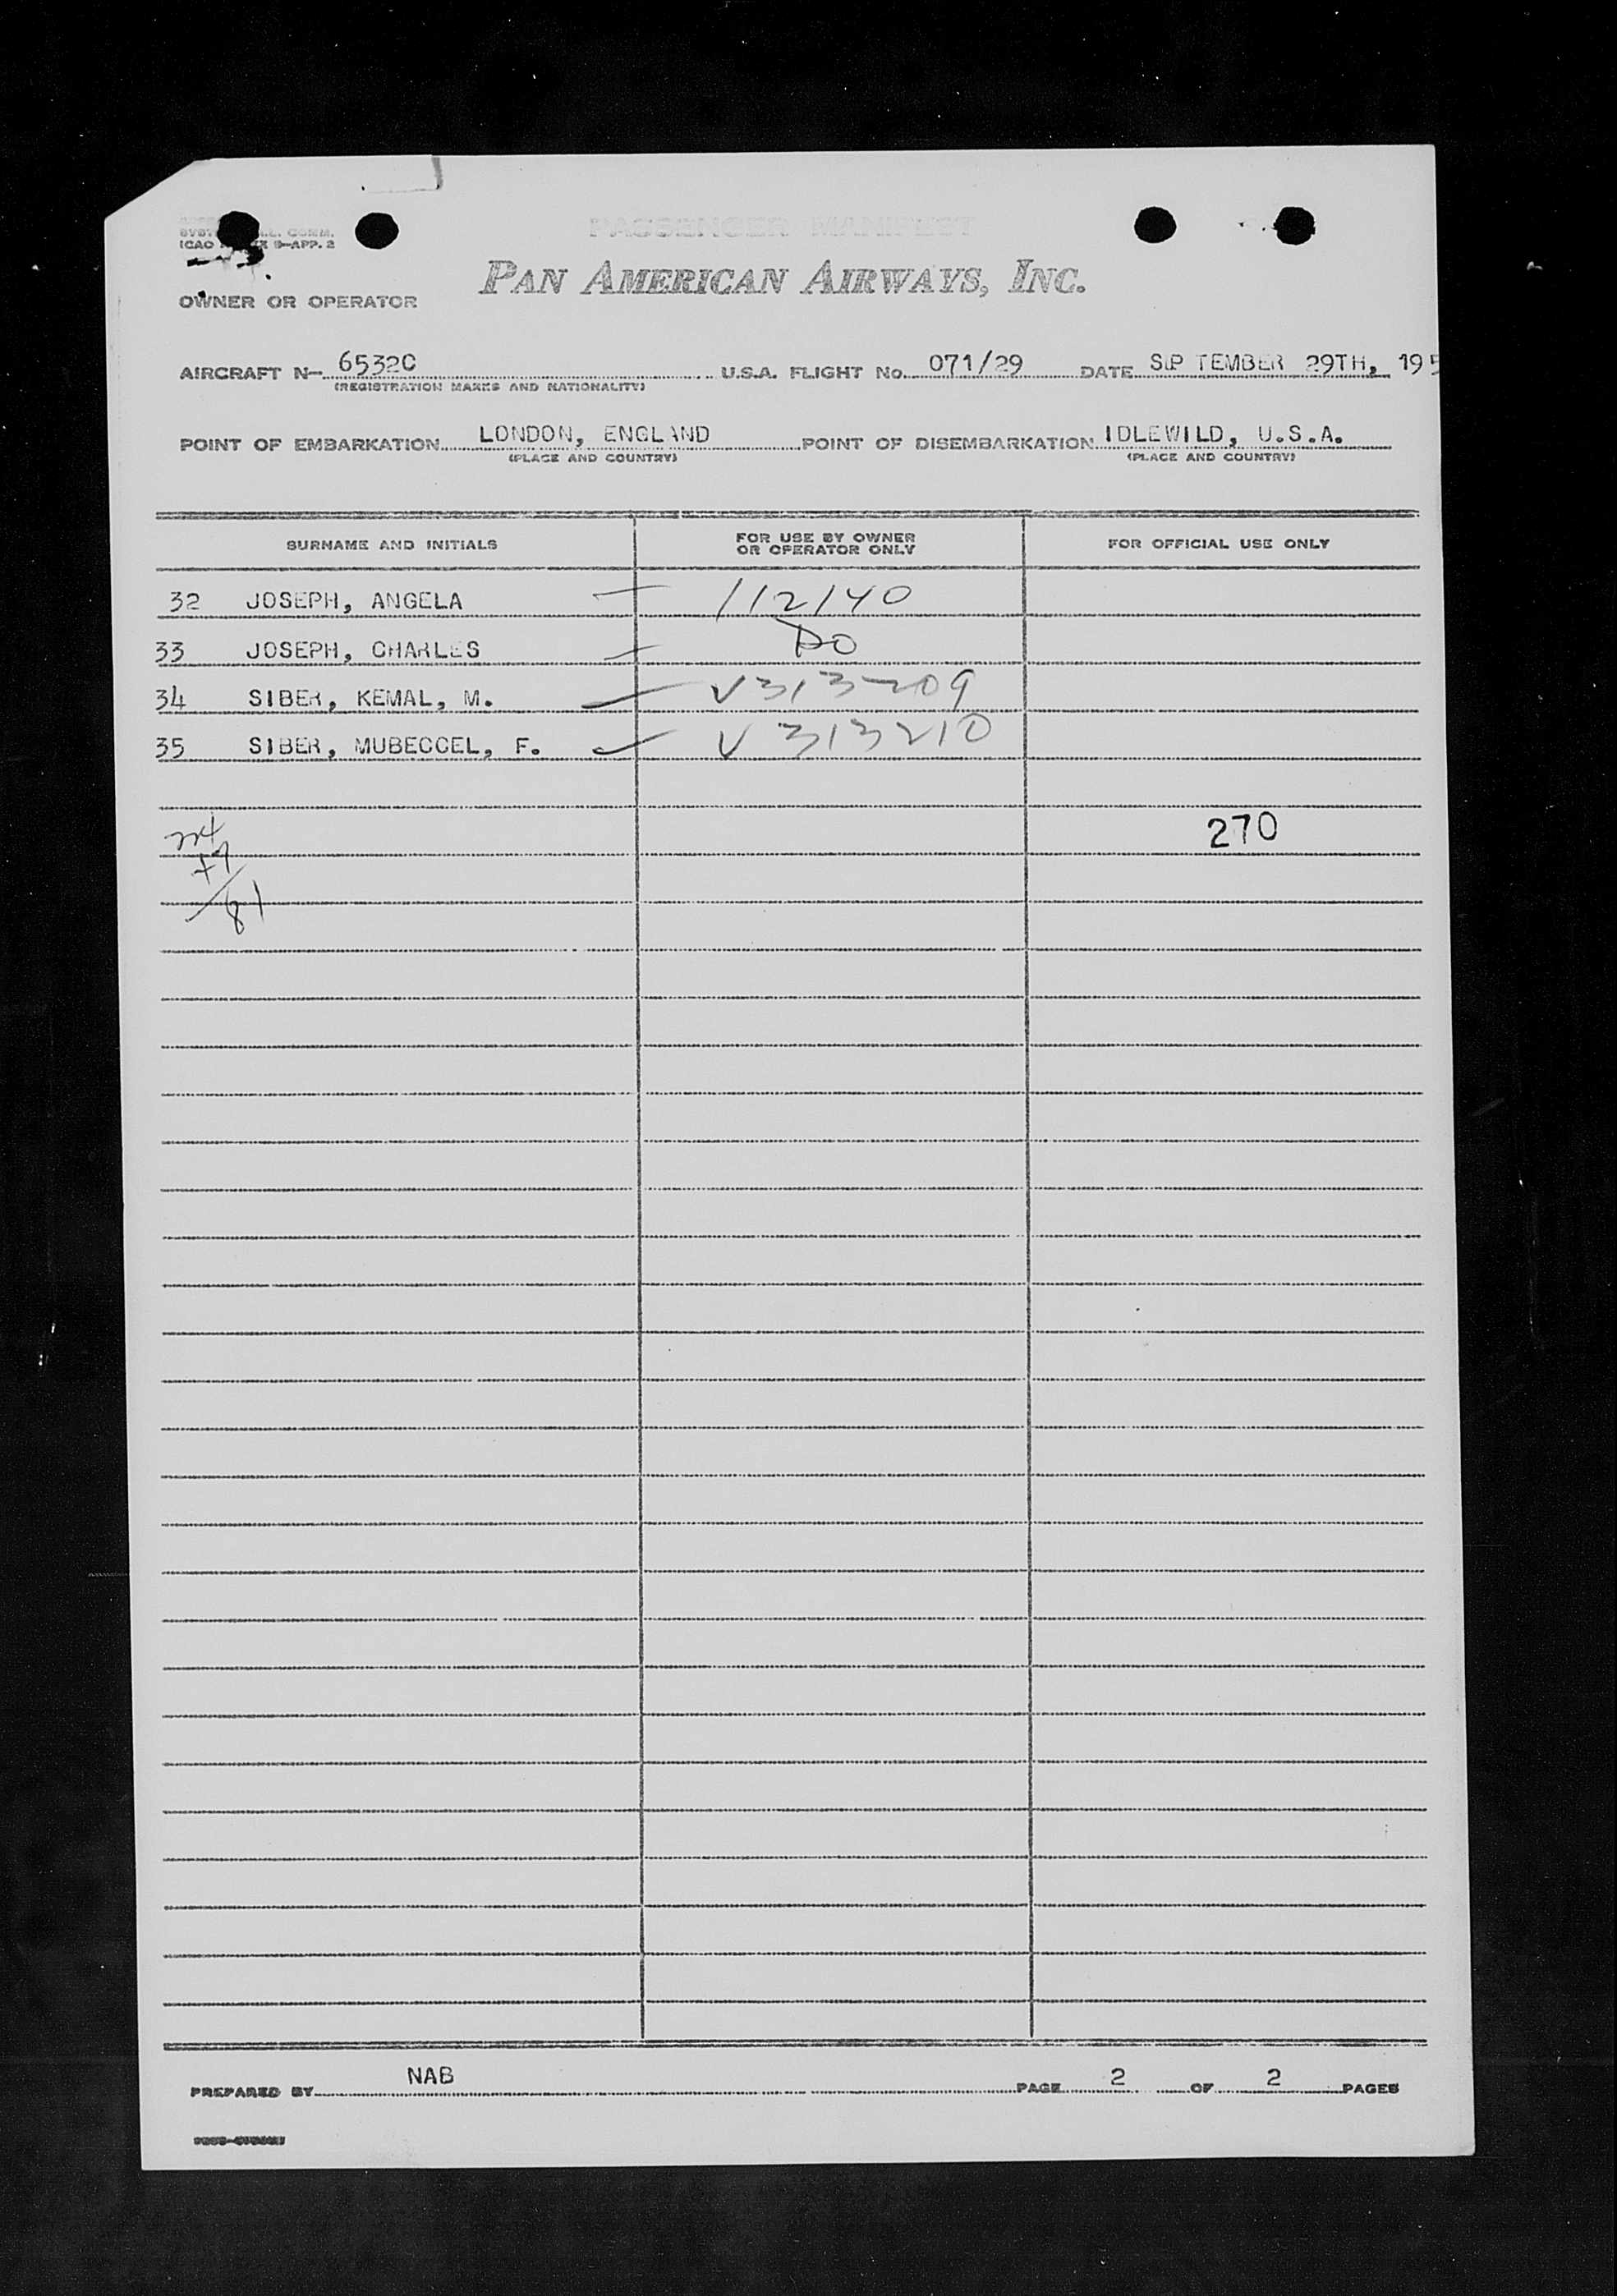 PASSENGER MANIFEST
ICAO 9-APP. 2
PAN AMERICAN AIRWAYS, INC.
OWNER OR OPERATOR
AIRCRAFT N- 6532C U.S.A. FLIGHT No. 071/29 DATE SEPTEMBER 29TH, 195
(REGISTRATION MARKS AND NATIONALITY)
POINT OF EMBARKATION LONDON, ENGLAND POINT OF DISEMBARKATION IDLEWILD, U.S.A.
(PLACE AND COUNTRY) (PLACE AND COUNTRY)
SURNAME AND INITIALS FOR USE BY OWNER OR OPERATOR ONLY FOR OFFICIAL USE ONLY
32 JOSEPH, ANGELA — 112140
33 JOSEPH, CHARLES — Do
34 SIBER, KEMAL, M. — V313209
35 SIBER, MUBECCEL, F. ✓ V313210
270
81
PREPARED BY NAB PAGE 2 OF 2 PAGES